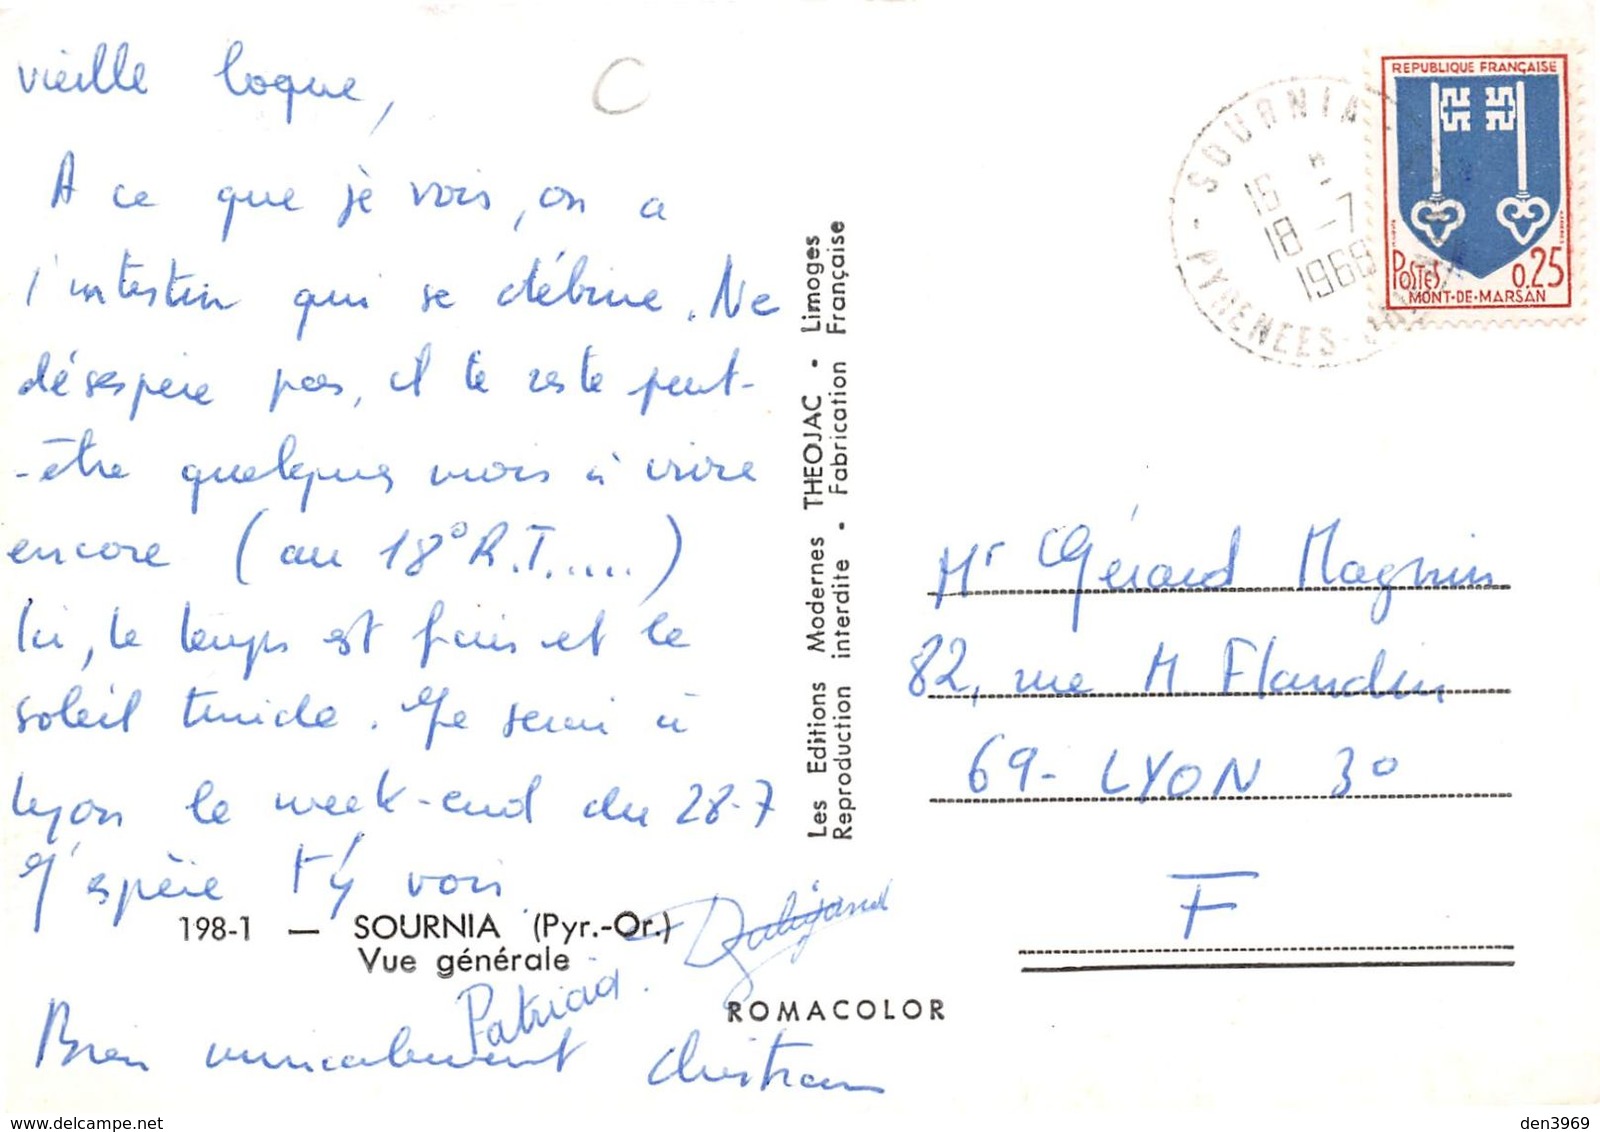 vieille loque,
A ce que je vois, on a
l'intestin qui se débine. Ne
désespère pas, il te reste peut-
-être quelques mois à vivre
encore (au 18° R.T.....)
Ici, le temps est frais et le
soleil timide. Je serai à
Lyon le week-end du 28-7
J'espère t'y voir
198-1 — SOURNIA (Pyr.-Or.)
Vue générale
Patricia.
Bien amicalement Christian
ROMACOLOR
Les Editions Modernes THEOJAC • Limoges
Reproduction interdite • Fabrication Française
C
SOURNIA
PYRENEES-
18 -7
REPUBLIQUE FRANÇAISE
POSTES 0.25
MONT-DE-MARSAN
Mr Gérard Magnin
82, rue M. Flandin
69- LYON 3°
F
den3969